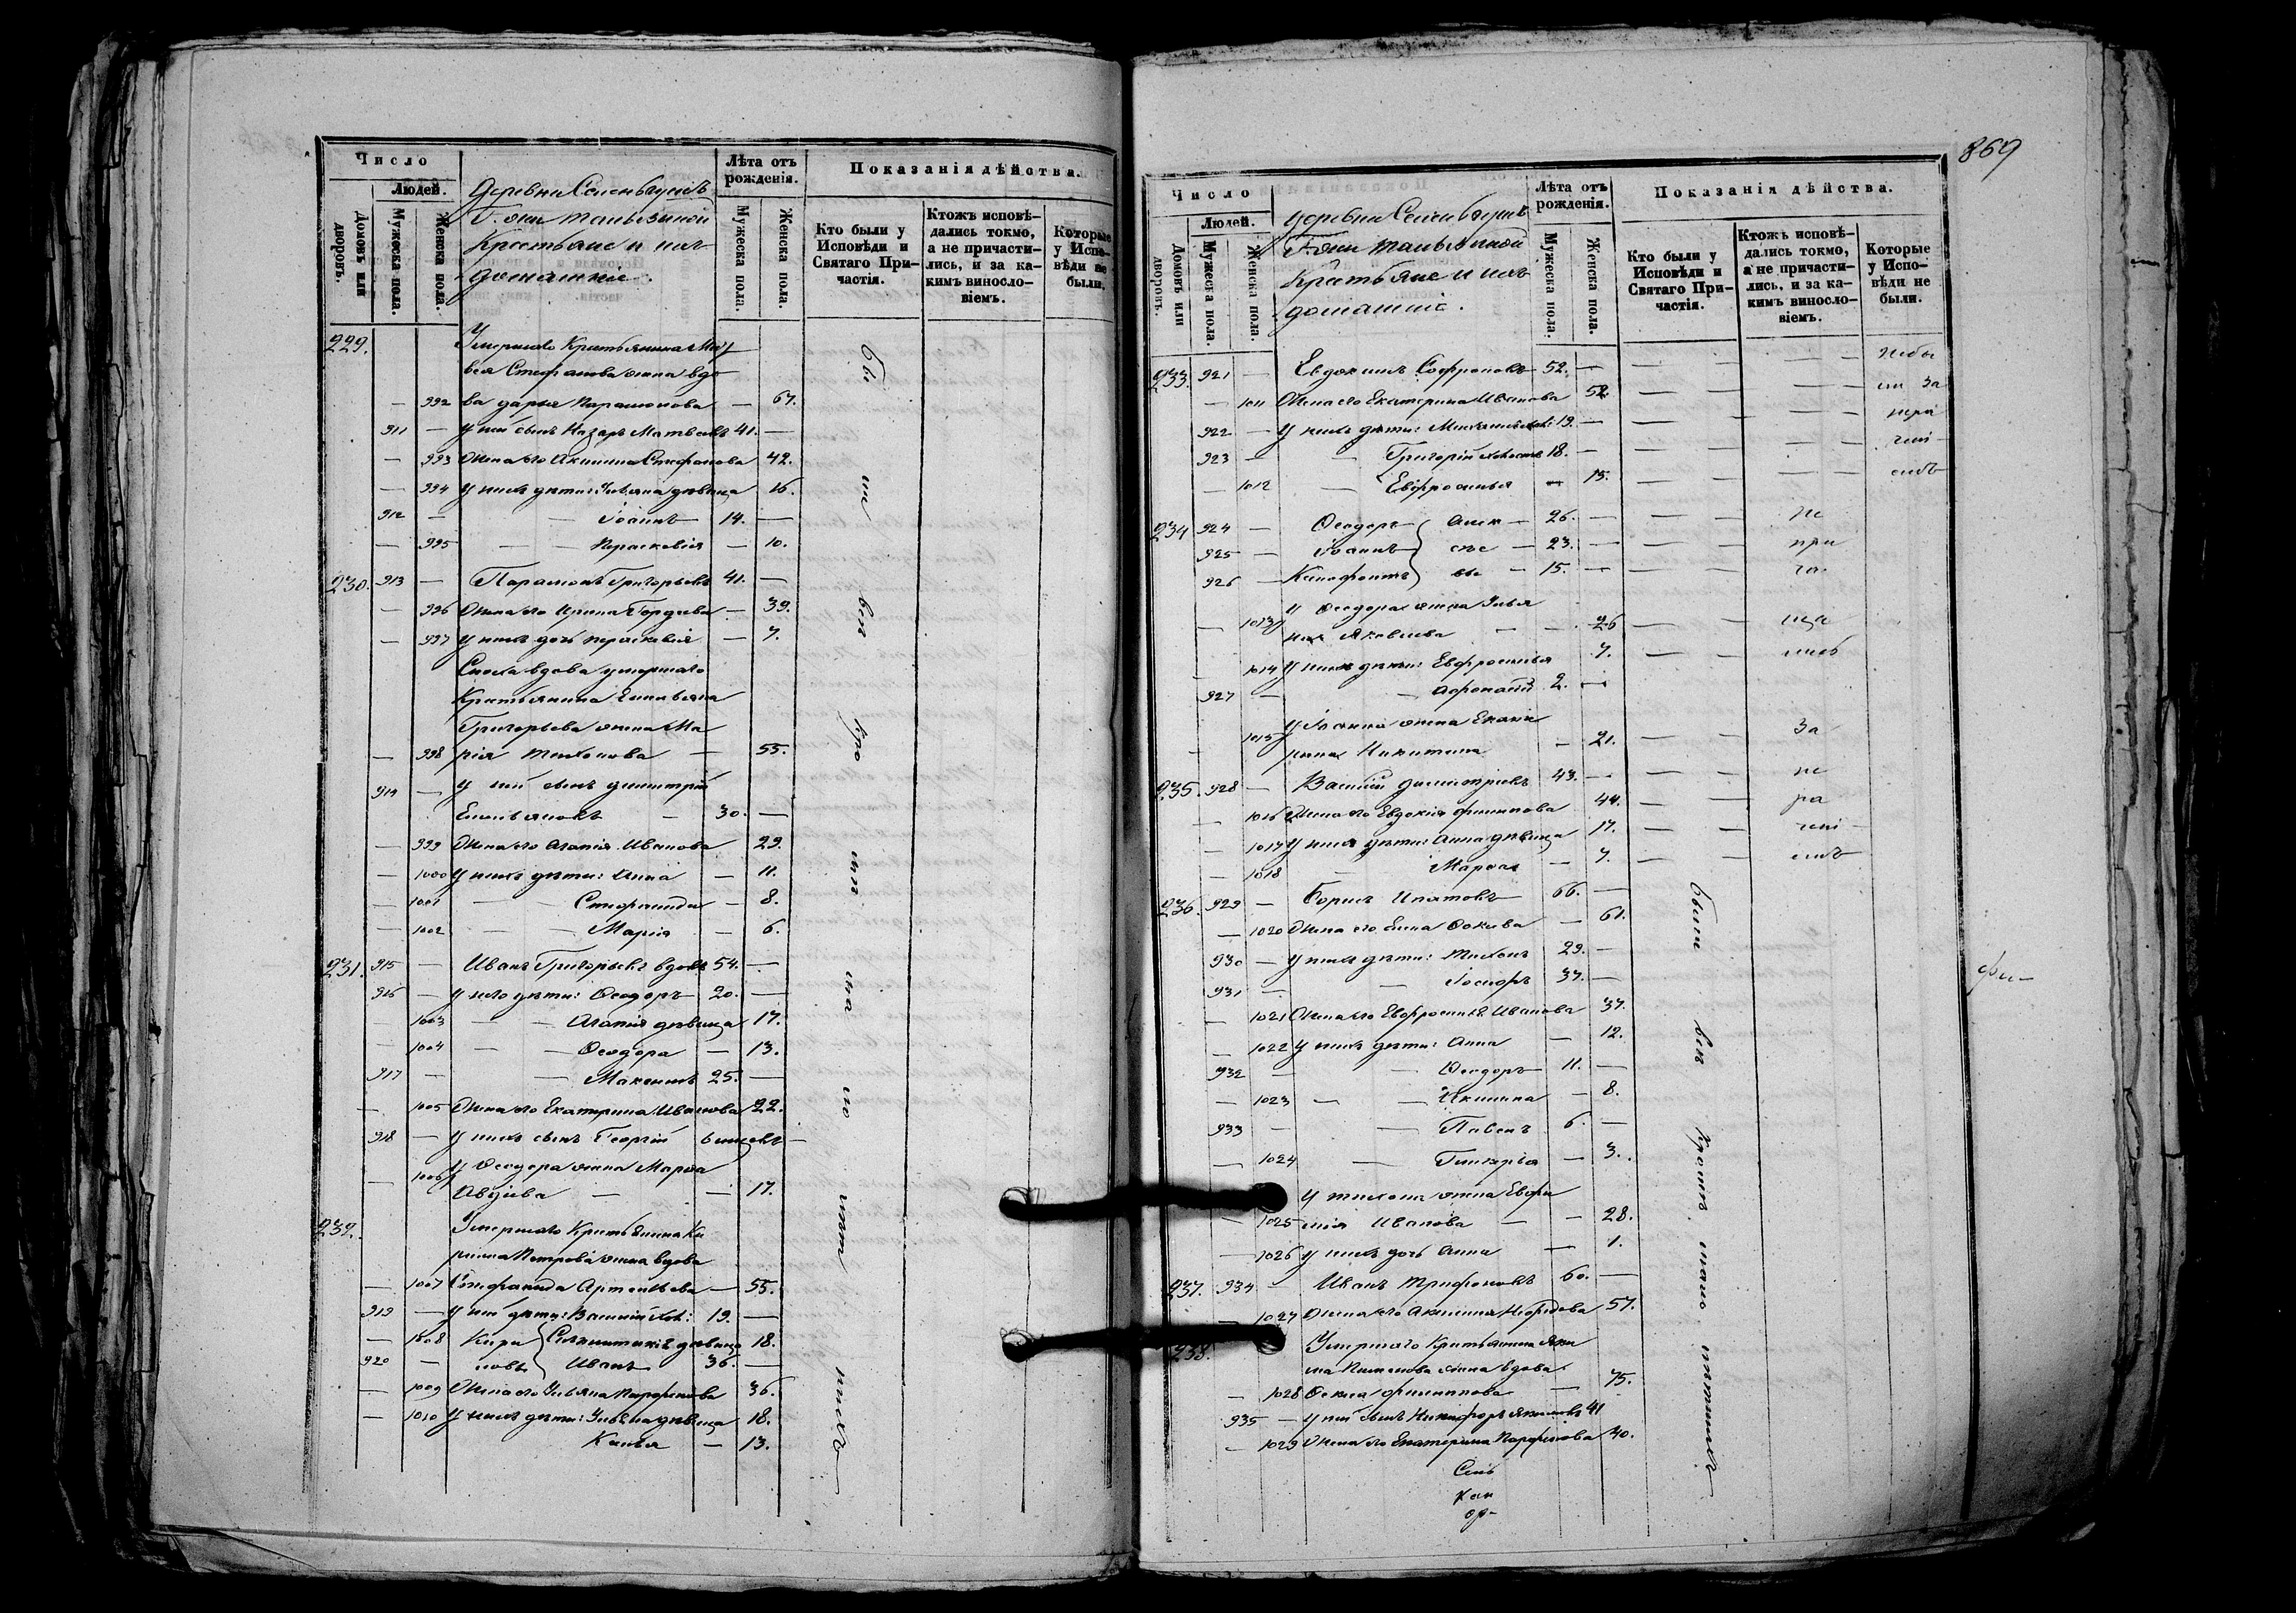 Число
Людей.
Домовъ или дворовъ.
Мужеска пола.
Женска пола.
Крестьяне и ихъ
домашніе.
Лѣта отъ рожденія.
Мужеска пола.
Женска пола.
Показанія дѣйства.
Кто были у Исповѣди и Святаго Причастія.
Ктожъ исповѣдались токмо, а не причастились, и за какимъ винословіемъ.
Которые у Исповѣди не были.
229. Умершаго Крестьянина Мат
вея Стефанова жена вдо
— 992 ва Дарья Парамонова — 67.
911 — у ней сынъ Назаръ Матвеевъ 41. —
— 993 Жена его Акилина Стефанова 42.
— 994 у нихъ дѣти: Ульяна дѣвица 16.
912 — — Іоаннъ 14. —
— 995 — — Параскевія — 10.
230. 913 — Парамонъ Григорьевъ 41. —
— 996 Жена его Ирина Гордеева — 39.
— 997 у нихъ дочь Параскевія — 7.
Сноха вдова умершаго
Крестьянина Емельяна
Григорьева жена Ма
— 998 рія Тихонова — 55.
914 — у ней сынъ Димитрій
Емельяновъ — 30. —
— 999 Жена его Агапія Иванова 29.
— 1000 у нихъ дѣти: Анна — 11.
— 1001 — — Стефанида — 8.
— 1002 — — Марія — 6.
231. 915 — Иванъ Григорьевъ вдовъ 54. —
916 — у него дѣти: Ѳеодоръ 20. —
1003 — — Агапія дѣвица 17.
1004 — — Ѳеодора — 13.
917 — — Максимъ 25. —
— 1005 Жена его Екатерина Иванова 22.
918 — у нихъ сынъ Георгій 6 мицовъ —
у Ѳеодора жена Марѳа
— 1006 Авдіева — — 17.
232. Умершаго Крестьянина Ки
рилла Петрова жена вдова
— 1007 Стефанида Артемьева — 55.
919 — у ней дѣти: Василій хол: 19. —
— 1008 Кири Синклитикія дѣвица 18.
920 — ловы Иванъ 36. —
— 1009 Жена его Ульяна Парфенова 36.
— 1010 у нихъ дѣти: Ульяна дѣвица 18.
— 13.
869
Число
Людей.
Домовъ или дворовъ.
Мужеска пола.
Женска пола.
Крестьяне и ихъ
домашніе.
Лѣта отъ рожденія.
Мужеска пола.
Женска пола.
Показанія дѣйства.
Кто были у Исповѣди и Святаго Причастія.
Ктожъ исповѣдались токмо, а не причастились, и за какимъ винословіемъ.
Которые у Исповѣди не были.
233. 921 — Евдокимъ Софроновъ 52. —
— 1011 Жена его Екатерина Иванова 52.
922 — у нихъ дѣти: 19. —
923 — — Григорій холостъ 18. —
— 1012 — Евфросинья — 15.
234 924 — Ѳеодоръ Алек — 26. —
925 — Іоаннъ сѣе — 23. —
926 — Ксенофонтъ вы — 15. —
у Ѳеодора жена Улья
— 1013 на Яковлева — — 26
— 1014 у нихъ дѣти: Евфросинья 7.
927 — — Аѳонасій 2. —
у Іоанна жена Екате
— 1015 рина Никитина — 21.
235. 928 — Василій Димитріевъ 43. —
— 1016 Жена его Евдокія Филиппова 44.
— 1017 у нихъ дѣти: Анна дѣвица 17.
— 1018 — Марѳа — 7.
236. 929 — Борисъ Ипатовъ 66. —
— 1020 Жена его Анна Фокина — 61.
930 — у нихъ дѣти: Тихонъ 29. —
931 — — 37. —
— 1021 Жена его Евфросинья Иванова 37.
— 1022 у нихъ дѣти: Анна — 12.
932 — — Ѳеодоръ 11. —
— 1023 — — Акилина — 8.
933 — — Павелъ 6. —
— 1024 — Гликерья — 3.
у Тихона жена Евфи
— 1025 мія Иванова — — 28.
— 1026 у нихъ дочь Анна — 1.
237. 934 — Иванъ Трифоновъ 60. —
— 1027 Жена его Акилина 57.
238. Умершаго Крестьянина Яки
ма Пименова жена вдова
— 1028 Филиппова — 75.
935 — у ней сынъ Никифоръ Якимовъ 41
— 1029 Жена его Екатерина Парфенова 40.
небы
ли за
нера
чені
емъ
не
при
ча
ща
лись
за
не
ра
чені
емъ
были всѣ кромѣ